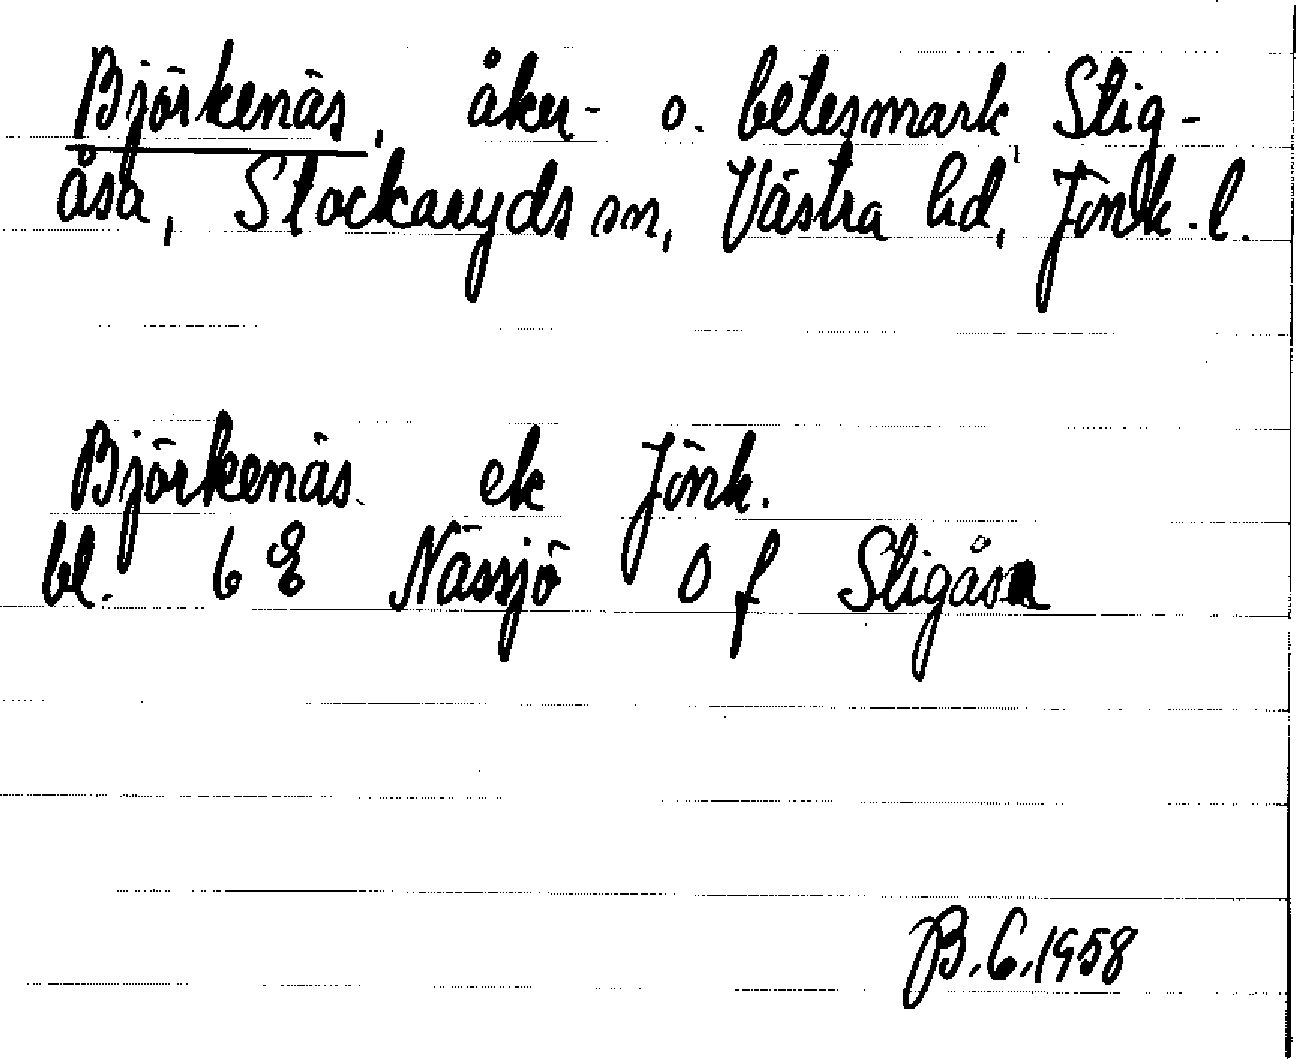 Björkenäs, åker- o. betesmark, Stig-
åsa, Stockaryds sn, Västra hd, Jönk. l.
Björkenäs ek Jönk.
bl. 6 E Nässjö 0 f Stigåsa
B.C.1958